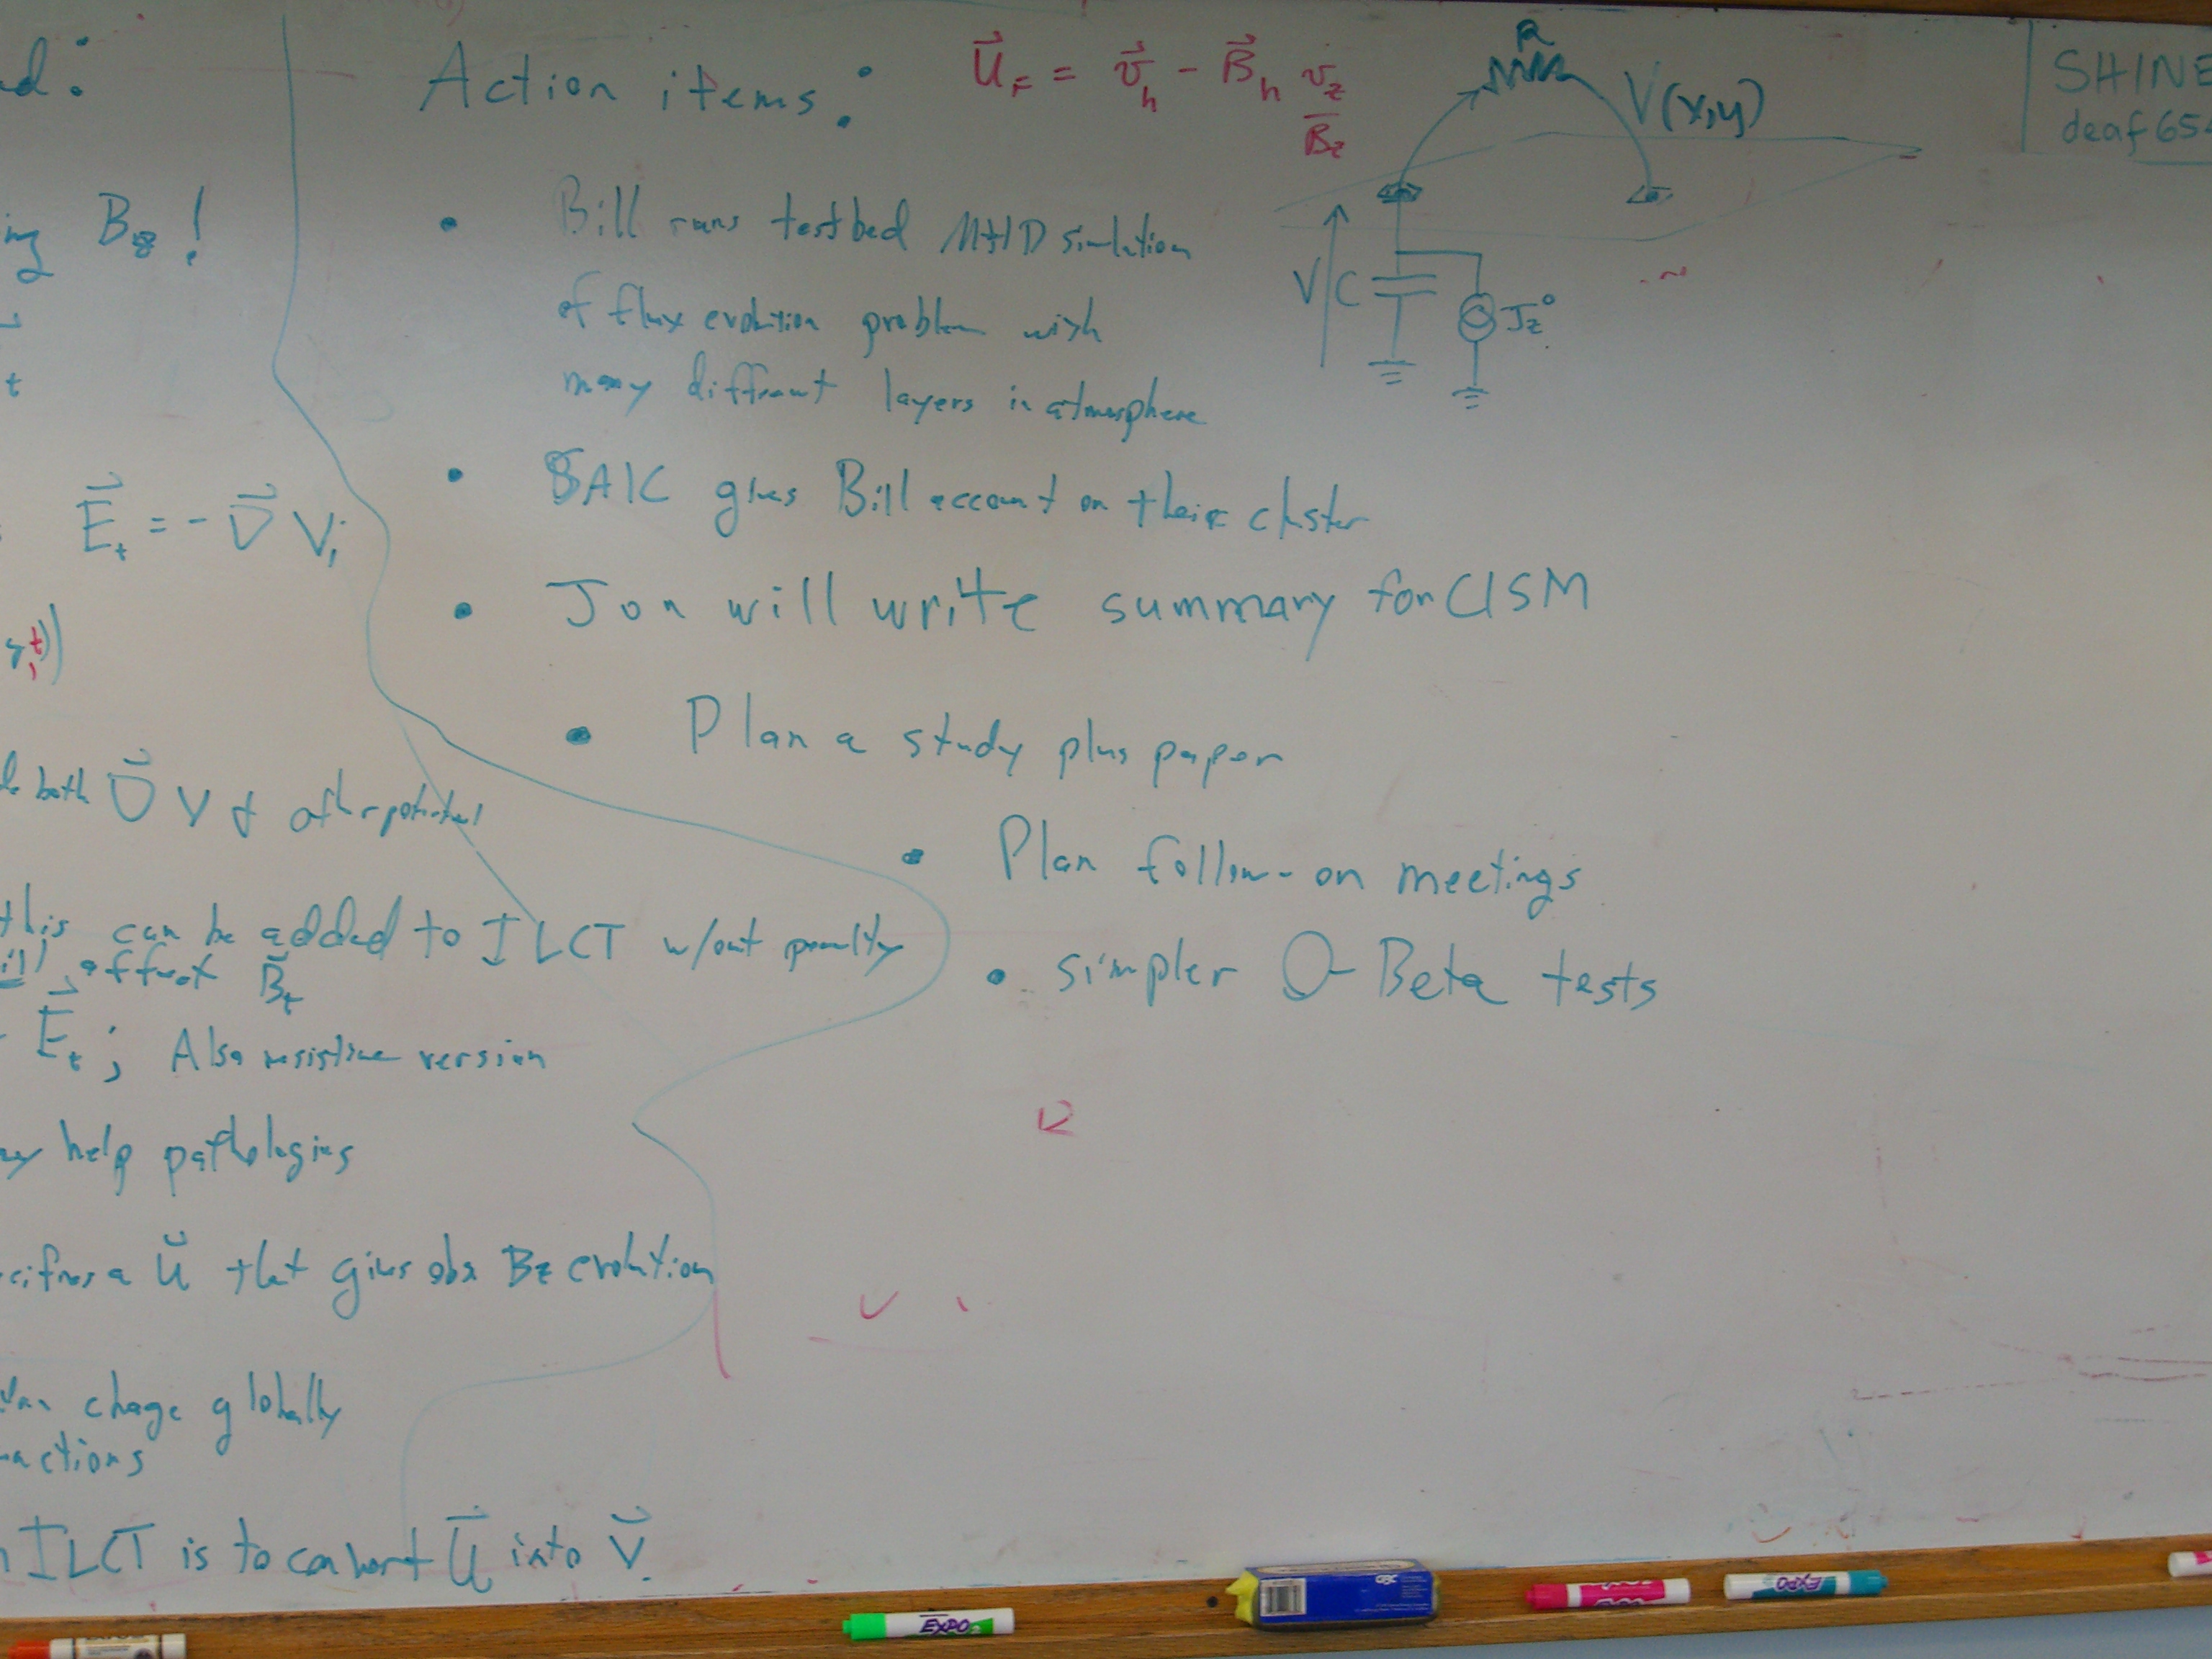 d:
ing Bz!
t
E⃗t = - ∇⃗ V;
y,t))
both ∇⃗ V & other potential
this can be added to ILCT w/out penalty
will affect B⃗t
E⃗t; Also resistive version
may help pathologies
a u⃗ that gives obs Bz evolution
change globally
ILCT is to convert u⃗ into v⃗.
Action items:
u⃗F = v⃗h - B⃗h vz/Bz
• Bill runs testbed MHD simulation
of flux evolution problem with
many diffrent layers in atmosphere
• SAIC gives Bill account on their cluster
• Jon will write summary for CISM
• Plan a study plus paper
• Plan follow-on meetings
• simpler 0-Beta tests
R
V(x,y)
V C Jz°
SHINE
deaf65
EXPO
EXPO
GBC